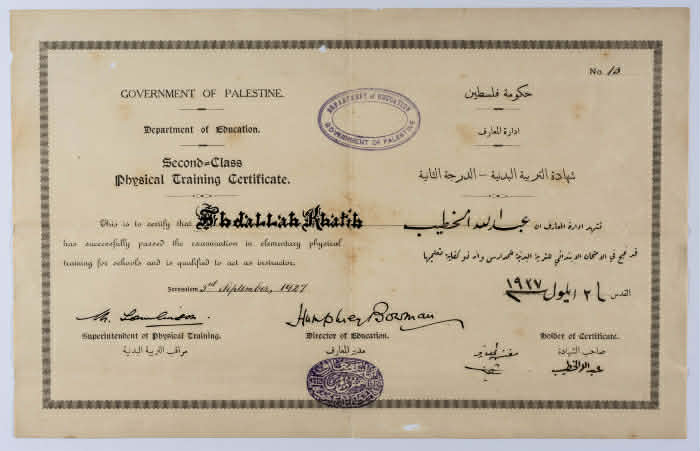 No. 10
GOVERNMENT OF PALESTINE.
Department of Education.
Second=Class
Physical Training Certificate.
This is to certify that Abdallah Khatib
has successfully passed the examination in elementary physical
training for schools and is qualified to act as instructor.
Jerusalem 3rd September, 1927
DEPARTMENT of EDUCATION
GOVERNMENT OF PALESTINE
حكومة فلسطين
ادارة المعارف
شهادة التربية البدنية – الدرجة الثانية
تشهد ادارة المعارف ان عبد الله الخطيب
قد نجح في الامتحان الابتدائي للتربية البدنية للمدارس وانه ذو كفاية لتعليمها
القدس ٣ ايلول ١٩٢٧
Superintendent of Physical Training.
مراقب التربية البدنية
Humphrey Bowman
Director of Education.
مدير المعارف
Holder of Certificate.
صاحب الشهادة
عبد الله الخطيب